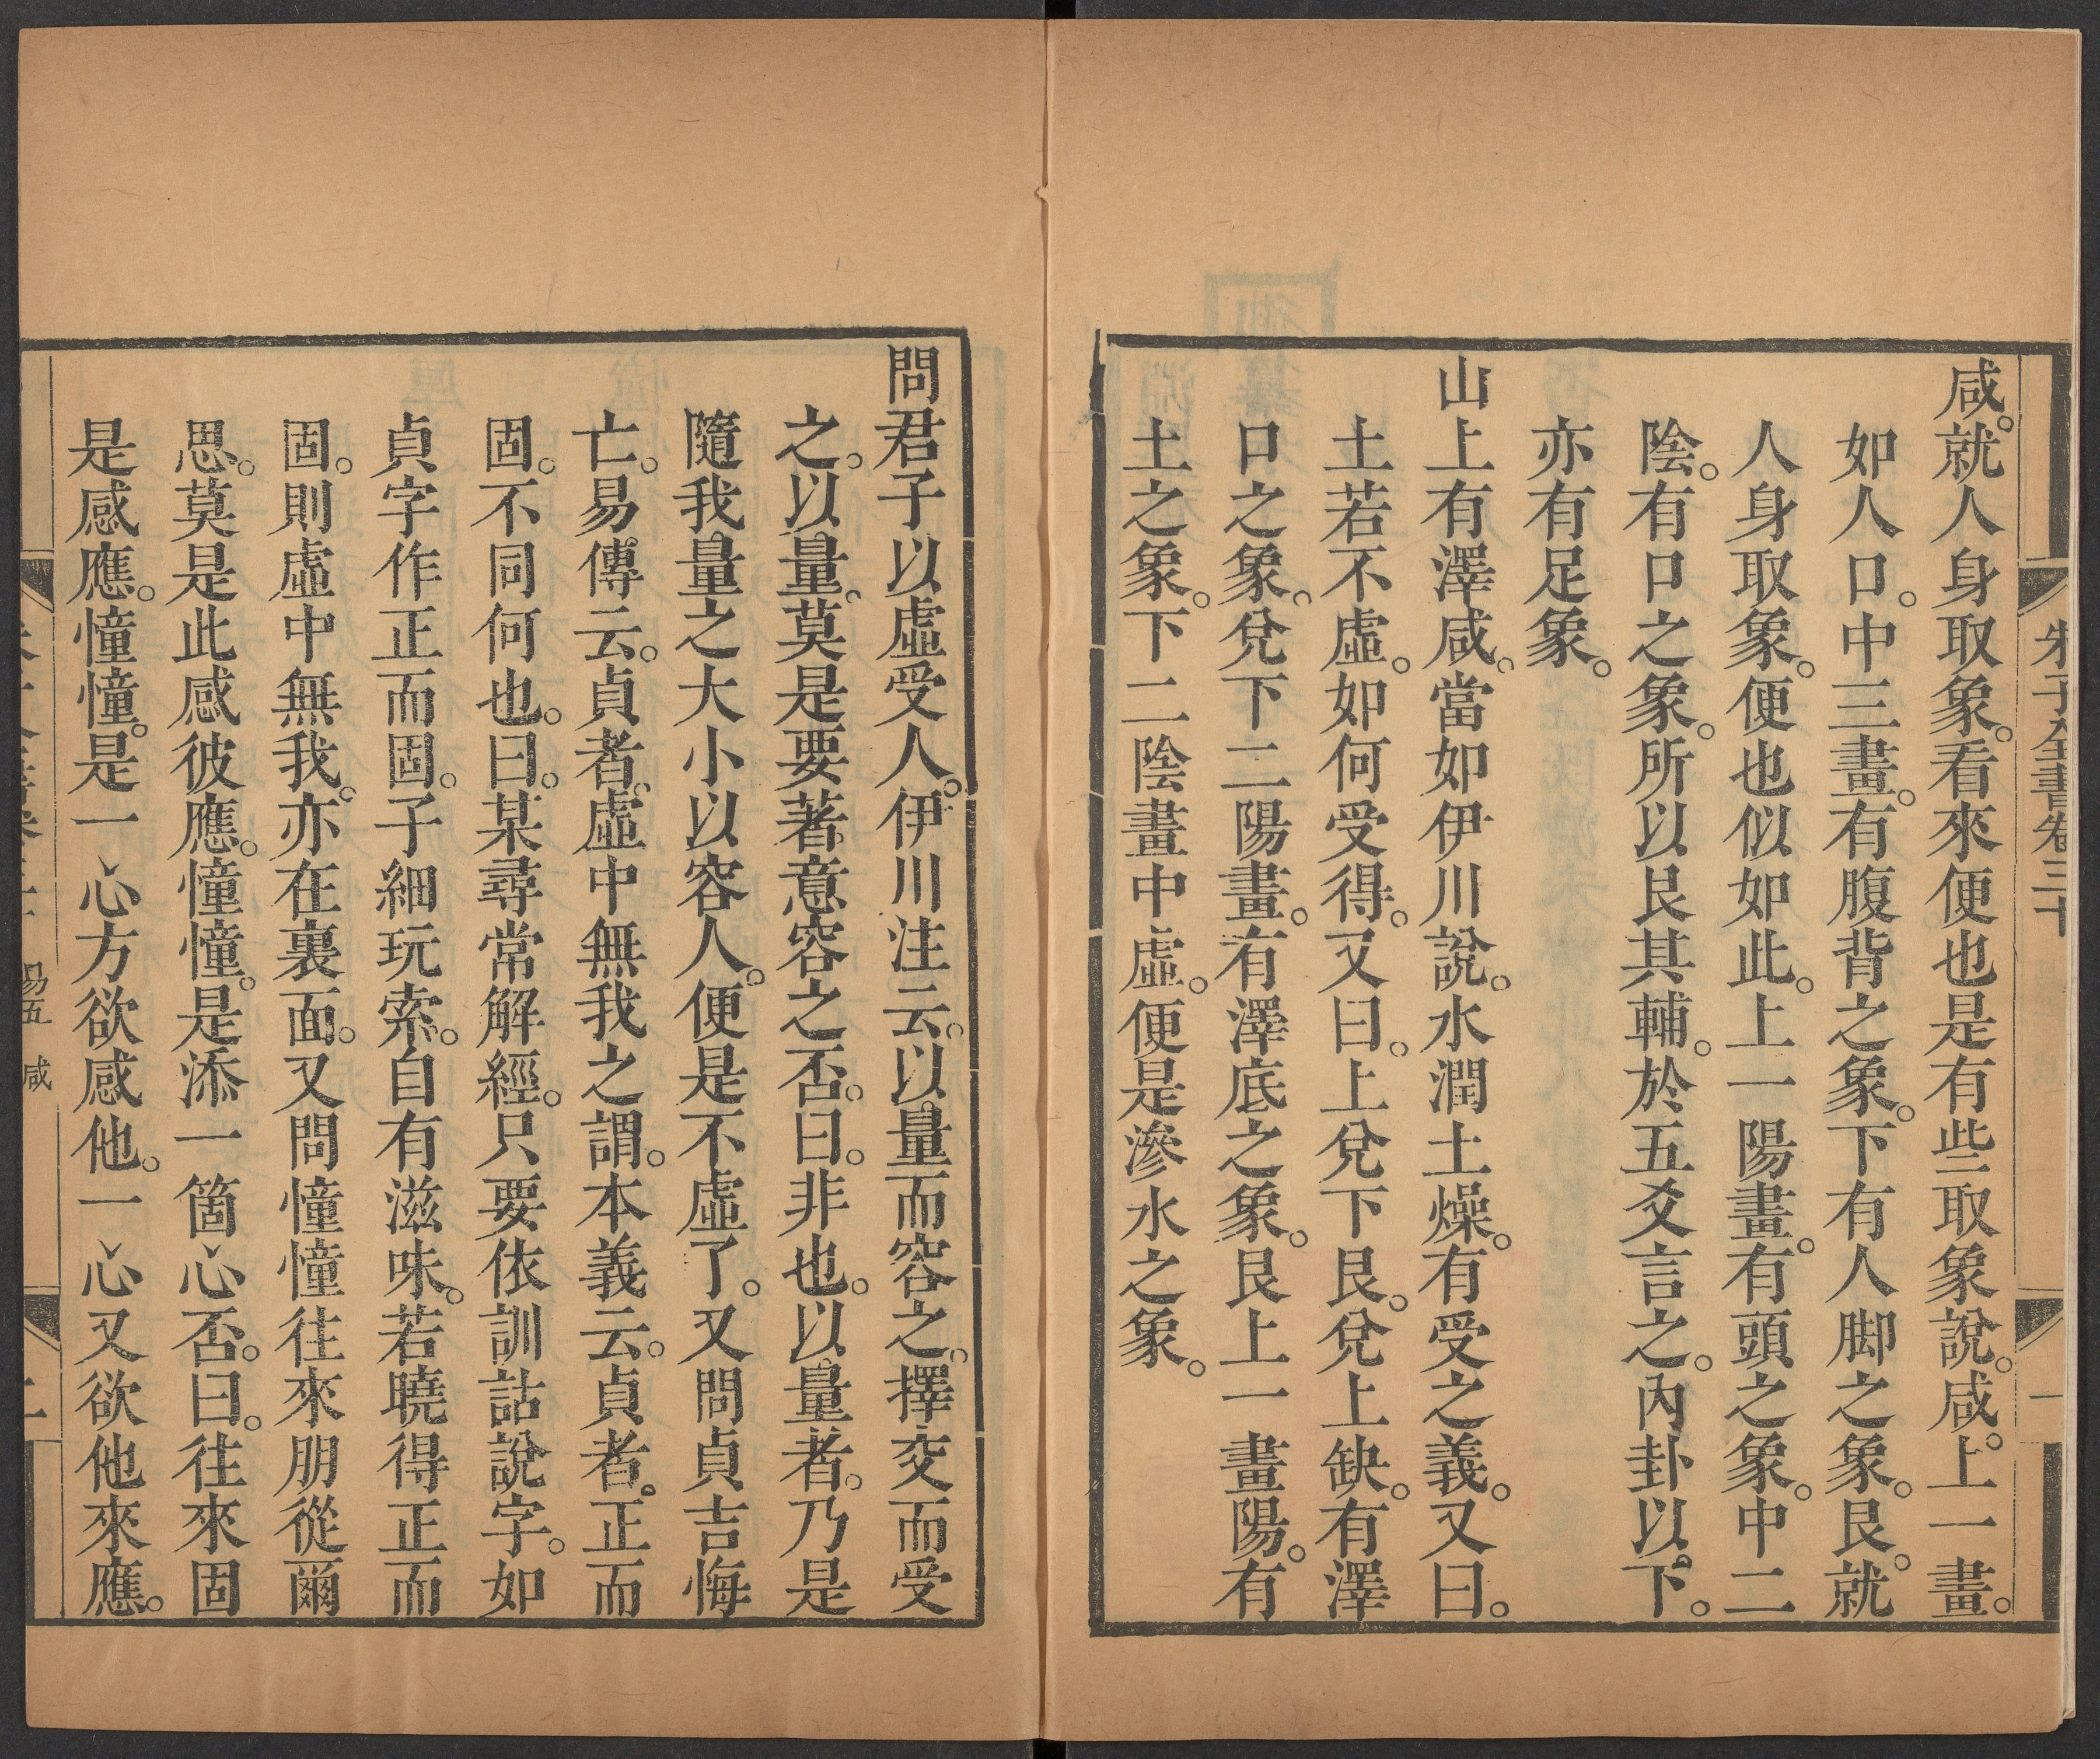 朱子全書卷三十
一
咸。就人身取象。看來便也是有些取象說。咸。上一畫。
如人口。中三畫。有腹背之象。下有人脚之象。艮。就
人身取象。便也似如此。上一陽畫。有頭之象。中二
陰。有口之象。所以艮其輔。於五爻言之。內卦以下。
亦有足象。
山上有澤咸。當如伊川說。水潤土燥。有受之義。又曰。
土若不虛。如何受得。又曰。上兌下艮。兌上缺。有澤
口之象。兌下二陽畫。有澤底之象。艮上一畫陽。有
土之象。下二陰畫中虛。便是滲水之象。
問君子以虛受人。伊川注云。以量而容之。擇交而受
之。以量。莫是要著意容之否。曰。非也。以量者。乃是
隨我量之大小以容人。便是不虛了。又問貞吉悔
亡。易傳云。貞者。虛中無我之謂。本義云。貞者。正而
固。不同何也。曰。某尋常解經。只要依訓詁說字。如
貞字作正而固。子細玩索。自有滋味。若曉得正而
固。則虛中無我。亦在裏面。又問憧憧往來朋從爾
思。莫是此感彼應。憧憧。是添一箇心否。曰。往來固
是感應。憧憧。是一心方欲感他。一心又欲他來應。
易五 咸
二